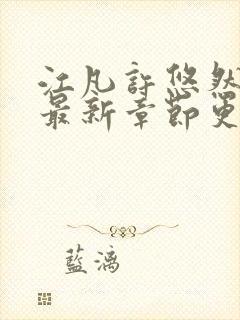 江凡許悠然
最新章節更
藍漓